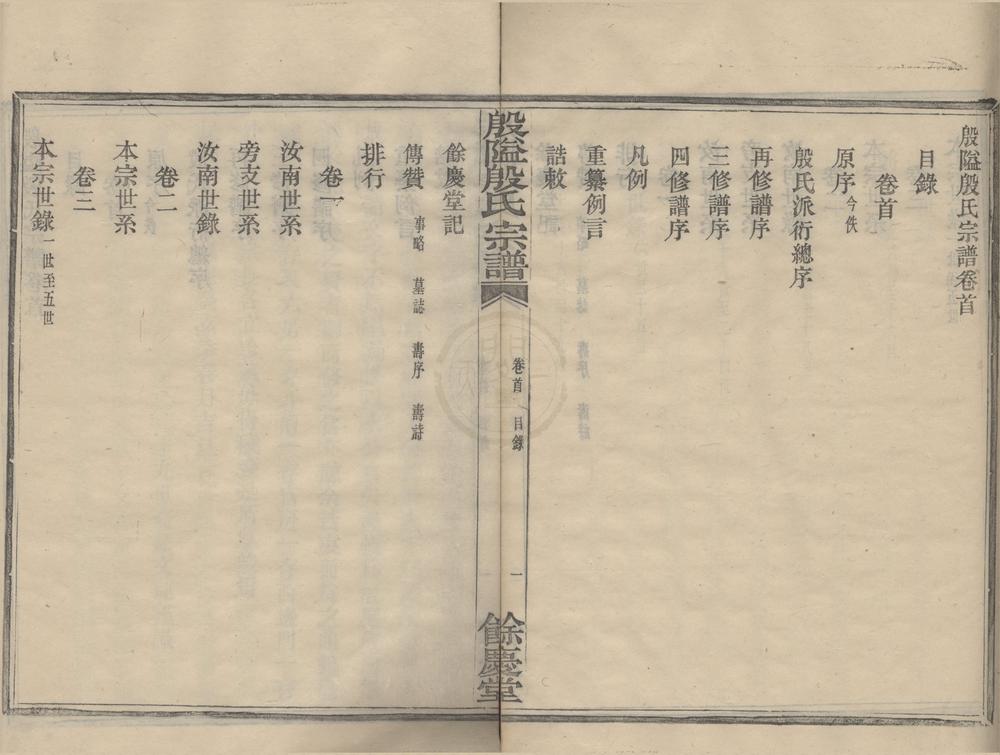 殷隘殷氏宗譜卷首
目錄
卷首
原序今佚
殷氏派衍總序
再修譜序
三修譜序
四修譜序
凡例
重纂例言
誥敕
殷隘殷氏宗譜
卷首 目錄
一
餘慶堂
餘慶堂記
傳贊 事略 墓誌 壽序 壽詩
排行
卷一
汝南世系
旁支世系
汝南世錄
卷二
本宗世系
卷三
本宗世錄一世至五世